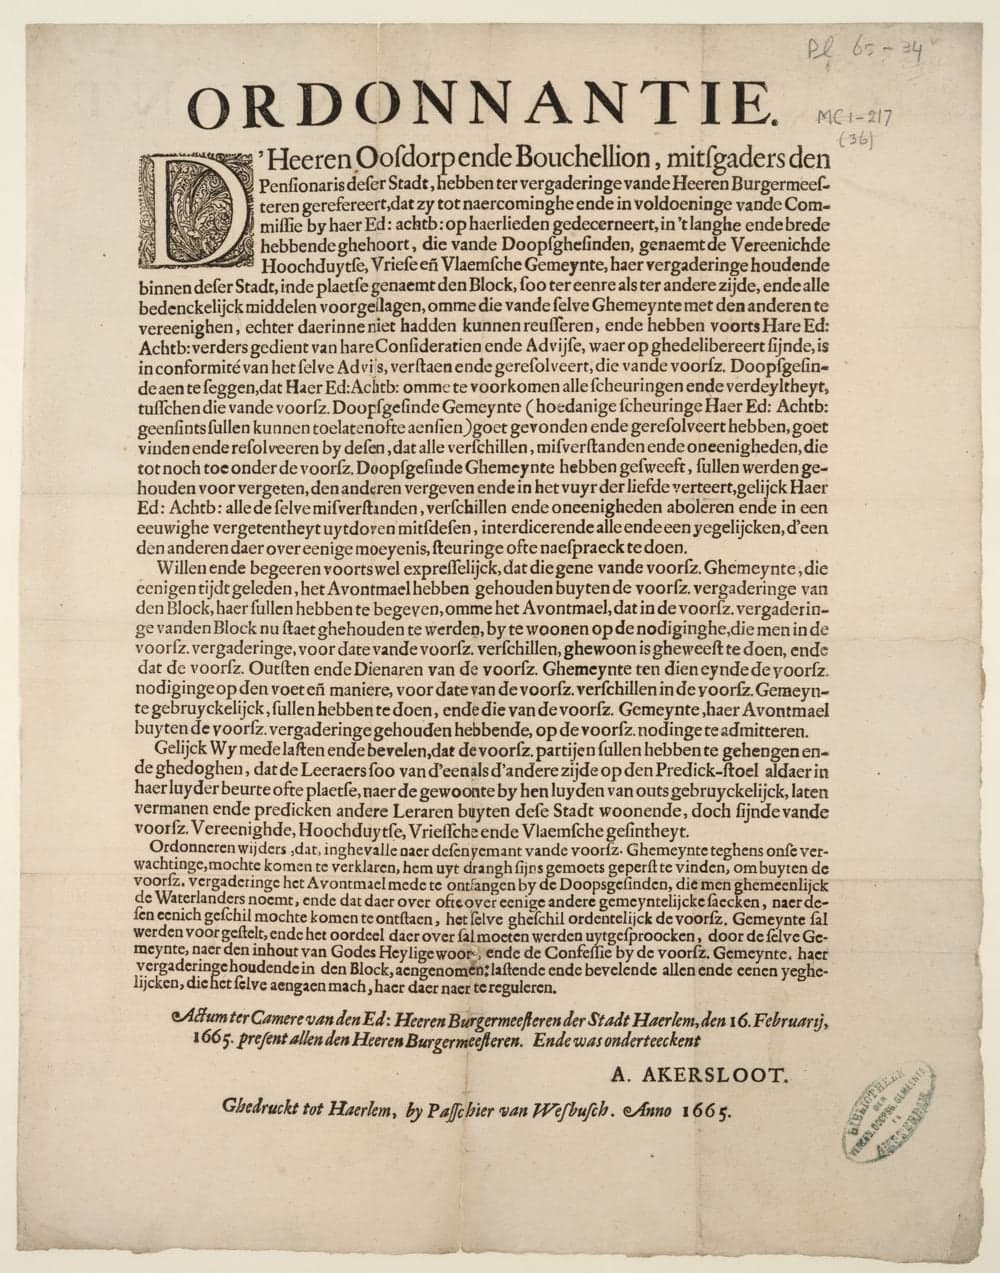 Pl 65-34
ORDONNANTIE.
MC 1-217
(36)
D'Heeren Ooſdorp ende Bouchellion, mitſgaders den
Penſionaris deſer Stadt, hebben ter vergaderinge vande Heeren Burgermeeſ-
teren gerefereert, dat zy tot naercominghe ende in voldoeninge vande Com-
miſſie by haer Ed: achtb: op haerlieden gedecerneert, in 't langhe ende brede
hebbende ghehoort, die vande Doopſgheſinden, genaemt de Vereenichde
Hoochduytſe, Vrieſe eñ Vlaemſche Gemeynte, haer vergaderinge houdende
binnen deſer Stadt, inde plaetſe genaemt den Block, ſoo ter eenre als ter andere zijde, ende alle
bedenckelijck middelen voorgeſlagen, omme die vande ſelve Ghemeynte met den anderen te
vereenighen, echter daerinne niet hadden kunnen reuſſeren, ende hebben voorts Hare Ed:
Achtb: verders gedient van hare Conſideratien ende Advijſe, waer op ghedelibereert ſijnde, is
in conformité van het ſelve Advijs, verſtaen ende gereſolveert, die vande voorſz. Doopſgeſin-
de aen te ſeggen, dat Haer Ed: Achtb: omme te voorkomen alle ſcheuringen ende verdeyltheyt,
tuſſchen die vande voorſz. Doopſgeſinde Gemeynte (hoedanige ſcheuringe Haer Ed: Achtb:
geenſints ſullen kunnen toelaten ofte aenſien) goet gevonden ende gereſolveert hebben, goet
vinden ende reſolveeren by deſen, dat alle verſchillen, miſverſtanden ende oneenigheden, die
tot noch toe onder de voorſz. Doopſgeſinde Ghemeynte hebben geſweeft, ſullen werden ge-
houden voor vergeten, den anderen vergeven ende in het vuyr der liefde verteert, gelijck Haer
Ed: Achtb: alle de ſelve miſverſtanden, verſchillen ende oneenigheden aboleren ende in een
eeuwighe vergetentheyt uytdoven mitſdeſen, interdicerende alle ende een yegelijcken, d'een
den anderen daer over eenige moeyenis, ſteuringe ofte naeſpraeck te doen.
Willen ende begeeren voorts wel expreſſelijck, dat die gene vande voorſz. Ghemeynte, die
eenigen tijdt geleden, het Avontmael hebben gehouden buyten de voorſz. vergaderinge van
den Block, haer ſullen hebben te begeven, omme het Avontmael, dat in de voorſz. vergaderin-
ge vanden Block nu ſtaet ghehouden te werden, by te woonen op de nodiginghe, die men in de
voorſz. vergaderinge, voor date vande voorſz. verſchillen, ghewoon is gheweeſt te doen, ende
dat de voorſz. Outſten ende Dienaren van de voorſz. Ghemeynte ten dien eynde de voorſz.
nodiginge op den voet eñ maniere, voor date van de voorſz. verſchillen in de voorſz. Gemeyn-
te gebruyckelijck, ſullen hebben te doen, ende die van de voorſz. Gemeynte, haer Avontmael
buyten de voorſz. vergaderinge gehouden hebbende, op de voorſz. nodinge te admitteren.
Gelijck Wy mede laſten ende bevelen, dat de voorſz. partijen ſullen hebben te gehengen en-
de ghedoghen, dat de Leeraers ſoo van d'een als d'andere zijde op den Predick-ſtoel aldaer in
haer luyder beurte ofte plaetſe, naer de gewoonte by hen luyden van outs gebruyckelijck, laten
vermanen ende predicken andere Leraren buyten deſe Stadt woonende, doch ſijnde vande
voorſz. Vereenighde, Hoochduytſe, Vrieſſche ende Vlaemſche geſintheyt.
Ordonneren wijders, dat, inghevalle naer deſen yemant vande voorſz. Ghemeynte teghens onſe ver-
wachtinge, mochte komen te verklaren, hem uyt drangh ſijns gemoets geperſt te vinden, om buyten de
voorſz. vergaderinge het Avontmael mede te ontfangen by de Doopsgeſinden, die men ghemeenlijck
de Waterlanders noemt, ende dat daer over ofte over eenige andere gemeyntelijcke ſaecken, naer de-
ſen eenich geſchil mochte komen te ontſtaen, het ſelve gheſchil ordentelijck de voorſz. Gemeynte ſal
werden voor geſtelt, ende het oordeel daer over ſal moeten werden uytgeſproocken, door de ſelve Ge-
meynte, naer den inhout van Godes Heylige woort, ende de Confeſſie by de voorſz. Gemeynte, haer
vergaderinge houdende in den Block, aengenomen; laſtende ende bevelende allen ende eenen yeghe-
lijcken, die het ſelve aengaen mach, haer daer naer te reguleren.
Actum ter Camere van den Ed: Heeren Burgermeeſteren der Stadt Haerlem, den 16. Februarij,
1665. preſent allen den Heeren Burgermeeſteren. Ende was onderteeckent
A. AKERSLOOT.
Ghedruckt tot Haerlem, by Paſſchier van Weſbuſch. Anno 1665.
BIBLIOTHEEK
DER
VEREEN. DOOPSG. GEMEENTE
TE
AMSTERDAM